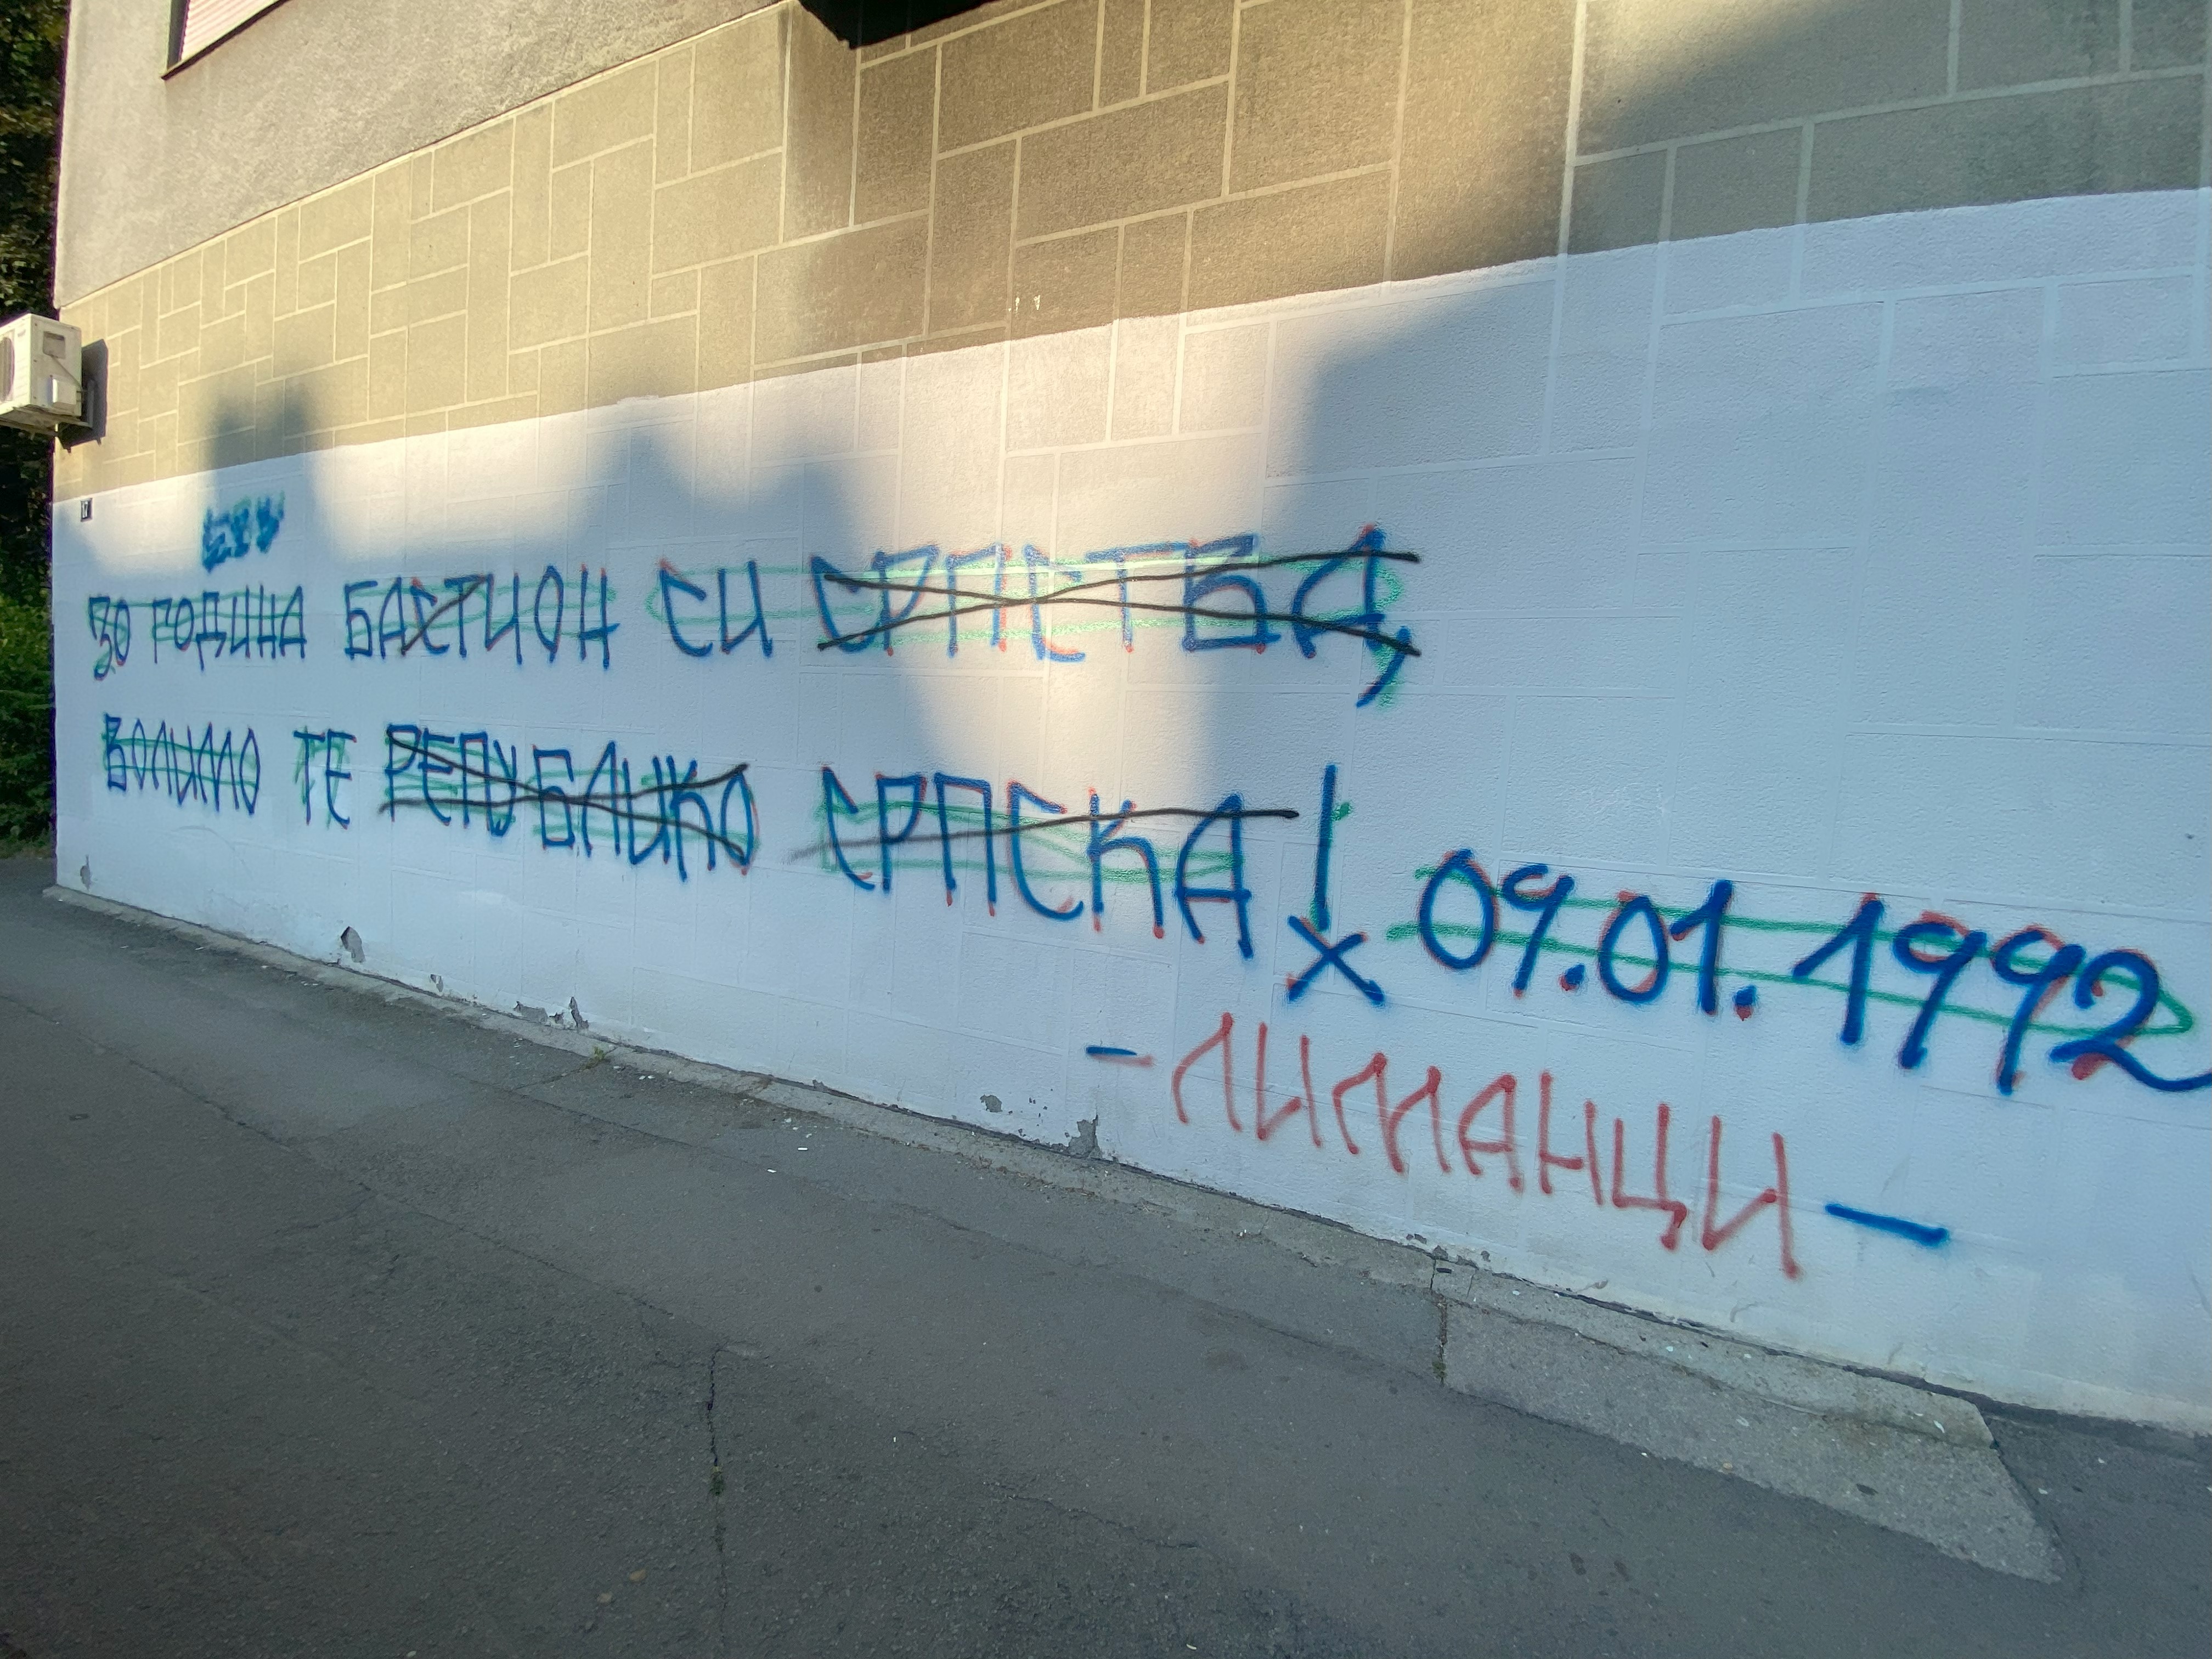 30 ГОДИНА БАСТИОН СИ СРПСТВА,
ВОЛИМО ТЕ РЕПУБЛИКО СРПСКА!
09.01.1992
- ЛИМАНЦИ -